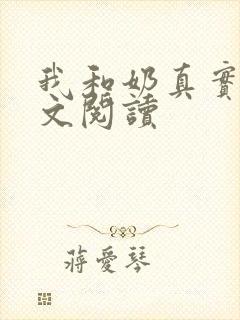 我和奶真實
文閱讀
蔣愛琴